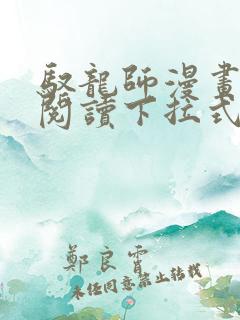 馭龍師漫畫
閱讀下拉式
鄭良霄
未經同意禁止轉載